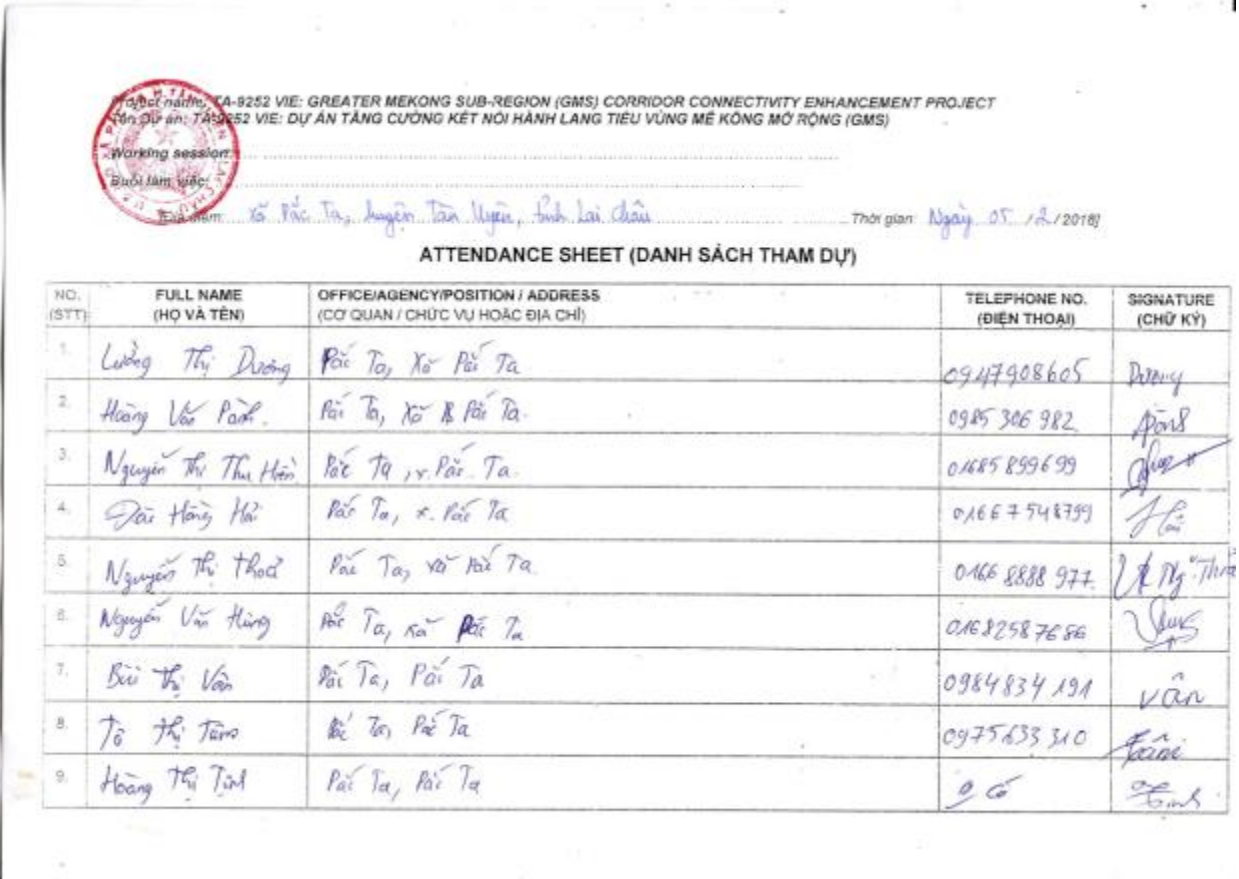 Project name: TA-9252 VIE: GREATER MEKONG SUB-REGION (GMS) CORRIDOR CONNECTIVITY ENHANCEMENT PROJECT
Tên Dự án: TA-9252 VIE: DỰ ÁN TĂNG CƯỜNG KẾT NỐI HÀNH LANG TIỂU VÙNG MÊ KÔNG MỞ RỘNG (GMS)
Working session:
Buổi làm việc:
Địa điểm: xã Pắc Ta, huyện Tân Uyên, tỉnh Lai Châu Thời gian: Ngày 05 / 2 / 2018]
ATTENDANCE SHEET (DANH SÁCH THAM DỰ)
NO. (STT) FULL NAME (HỌ VÀ TÊN) OFFICE/AGENCY/POSITION / ADDRESS (CƠ QUAN / CHỨC VỤ HOẶC ĐỊA CHỈ) TELEPHONE NO. (ĐIỆN THOẠI) SIGNATURE (CHỮ KÝ)
1. Thị Dương Pắc Ta, Xã Pắc Ta 0947908605 Dương
2. Hoàng Văn Pắc Ta, Xã Pắc Ta 0985 306 982
3. Nguyễn Thị Thu Hiền Pắc Ta, x. Pắc Ta 01685 899699
4. Hồng Hải Pắc Ta, x. Pắc Ta 01667548799 Hải
5. Nguyễn Thị Thoả Pắc Ta, xã Pắc Ta 0166 8888 977
6. Nguyễn Văn Hùng Pắc Ta, xã Pắc Ta 01682587686
7. Bùi Thị Vân Pắc Ta, Pắc Ta 0984834191 Vân
8. Tô Thị Tâm Pắc Ta, Pắc Ta 0975633310
9. Hoàng Thị Tình Pắc Ta, Pắc Ta 0 Có Tình